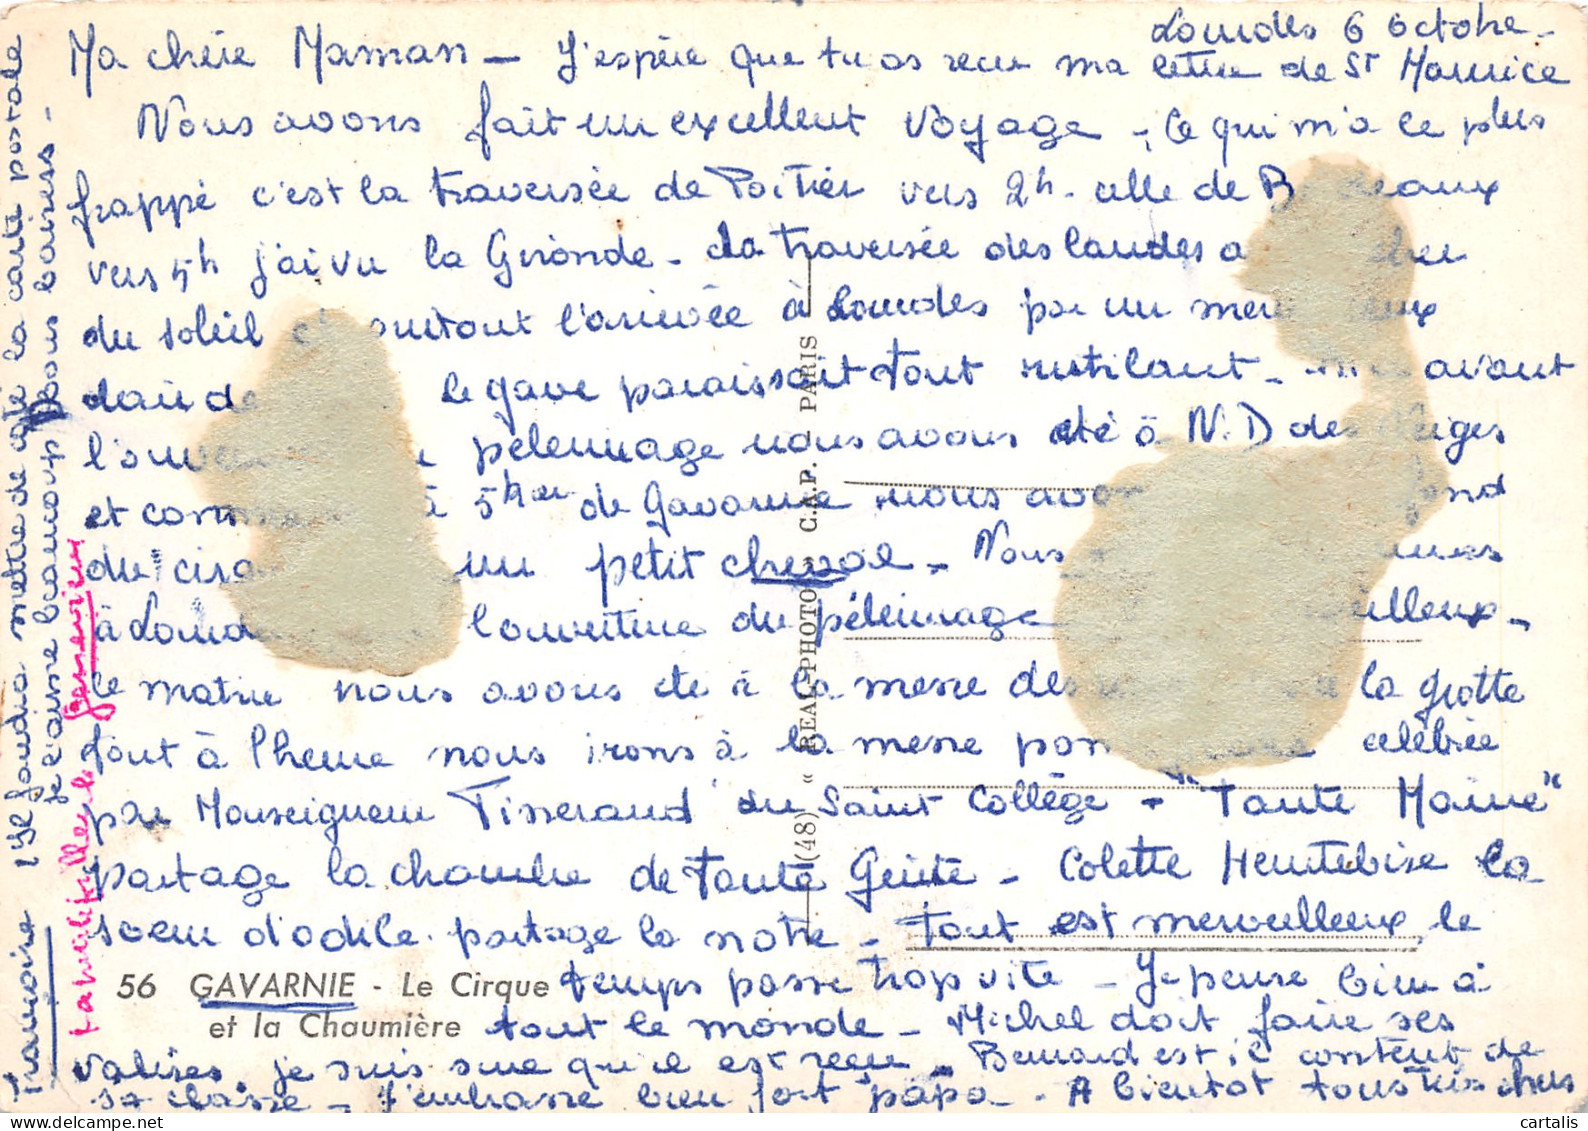 Lourdes 6 octobre -
Ma chère Maman - J'espère que tu as recu ma lettre de St Maurice
Nous avons fait un excellent voyage - Ce qui m'a le plus
frappé c'est la traversée de Poitier vers 2h - celle de B eaux
vers 5h j'ai vu la Gironde - La traversée des landes a
du soleil surtout l'arrivée à Lourdes par un mer eux
clair de le gave paraissait tout rutilant - avant
l'ouve pélerinage nous avons été à N.D des Neiges
et comme à 5h de Gavarnie nous avo fond
du cir un petit cheval - Nous
à Lourd l'ouverture du pélerinage eilleux -
Ce matin nous avons été à la messe des la grotte
tout à l'heure nous irons à la messe célébrée
par Monseigneur Tisserand du Saint Collège - "Tante Moine"
partage la chambre de Tante Ginite - Colette Heurtebise la
soeur d'Odile partage la notre - Tout est merveilleux, le
temps passe trop vite - Je pense bien à
tout le monde - Michel doit faire ses
valises je suis sure qu'il est recu - Bernard est il content de
sa classe - J'embrasse bien fort papa - A bientot tous très chers
56 GAVARNIE - Le Cirque
et la Chaumière
(48) « REAL-PHOTO » C.A.P. PARIS
Françoise Il faudra mettre de coté la carte postale
je t'aime beaucoup bons baisers -
ta petite fille